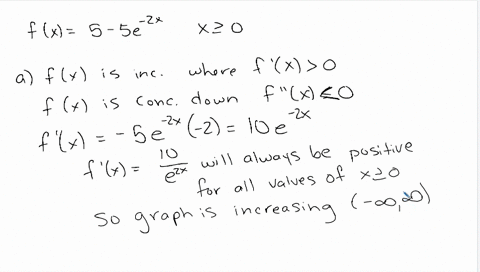 f(x) = 5 - 5e^{-2x}    x ≥ 0
a) f(x) is inc. where f'(x) > 0
f(x) is conc. down f''(x) < 0
f'(x) = -5e^{-2x}(-2) = 10e^{-2x}
f'(x) = 10/e^{2x} will always be positive
for all values of x ≥ 0
so graph is increasing (-∞, ∞)